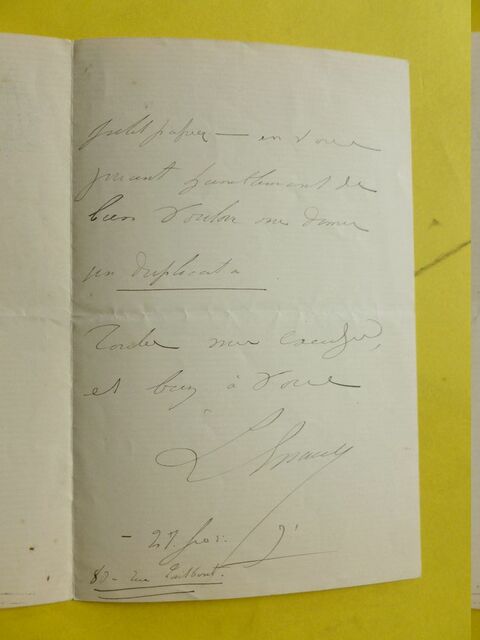 petit papier — en vous
priant humblement de
bien vouloir me donner
un duplicata
Toutes mes excuses,
et bien à vous
27
80 - rue Taitbout.